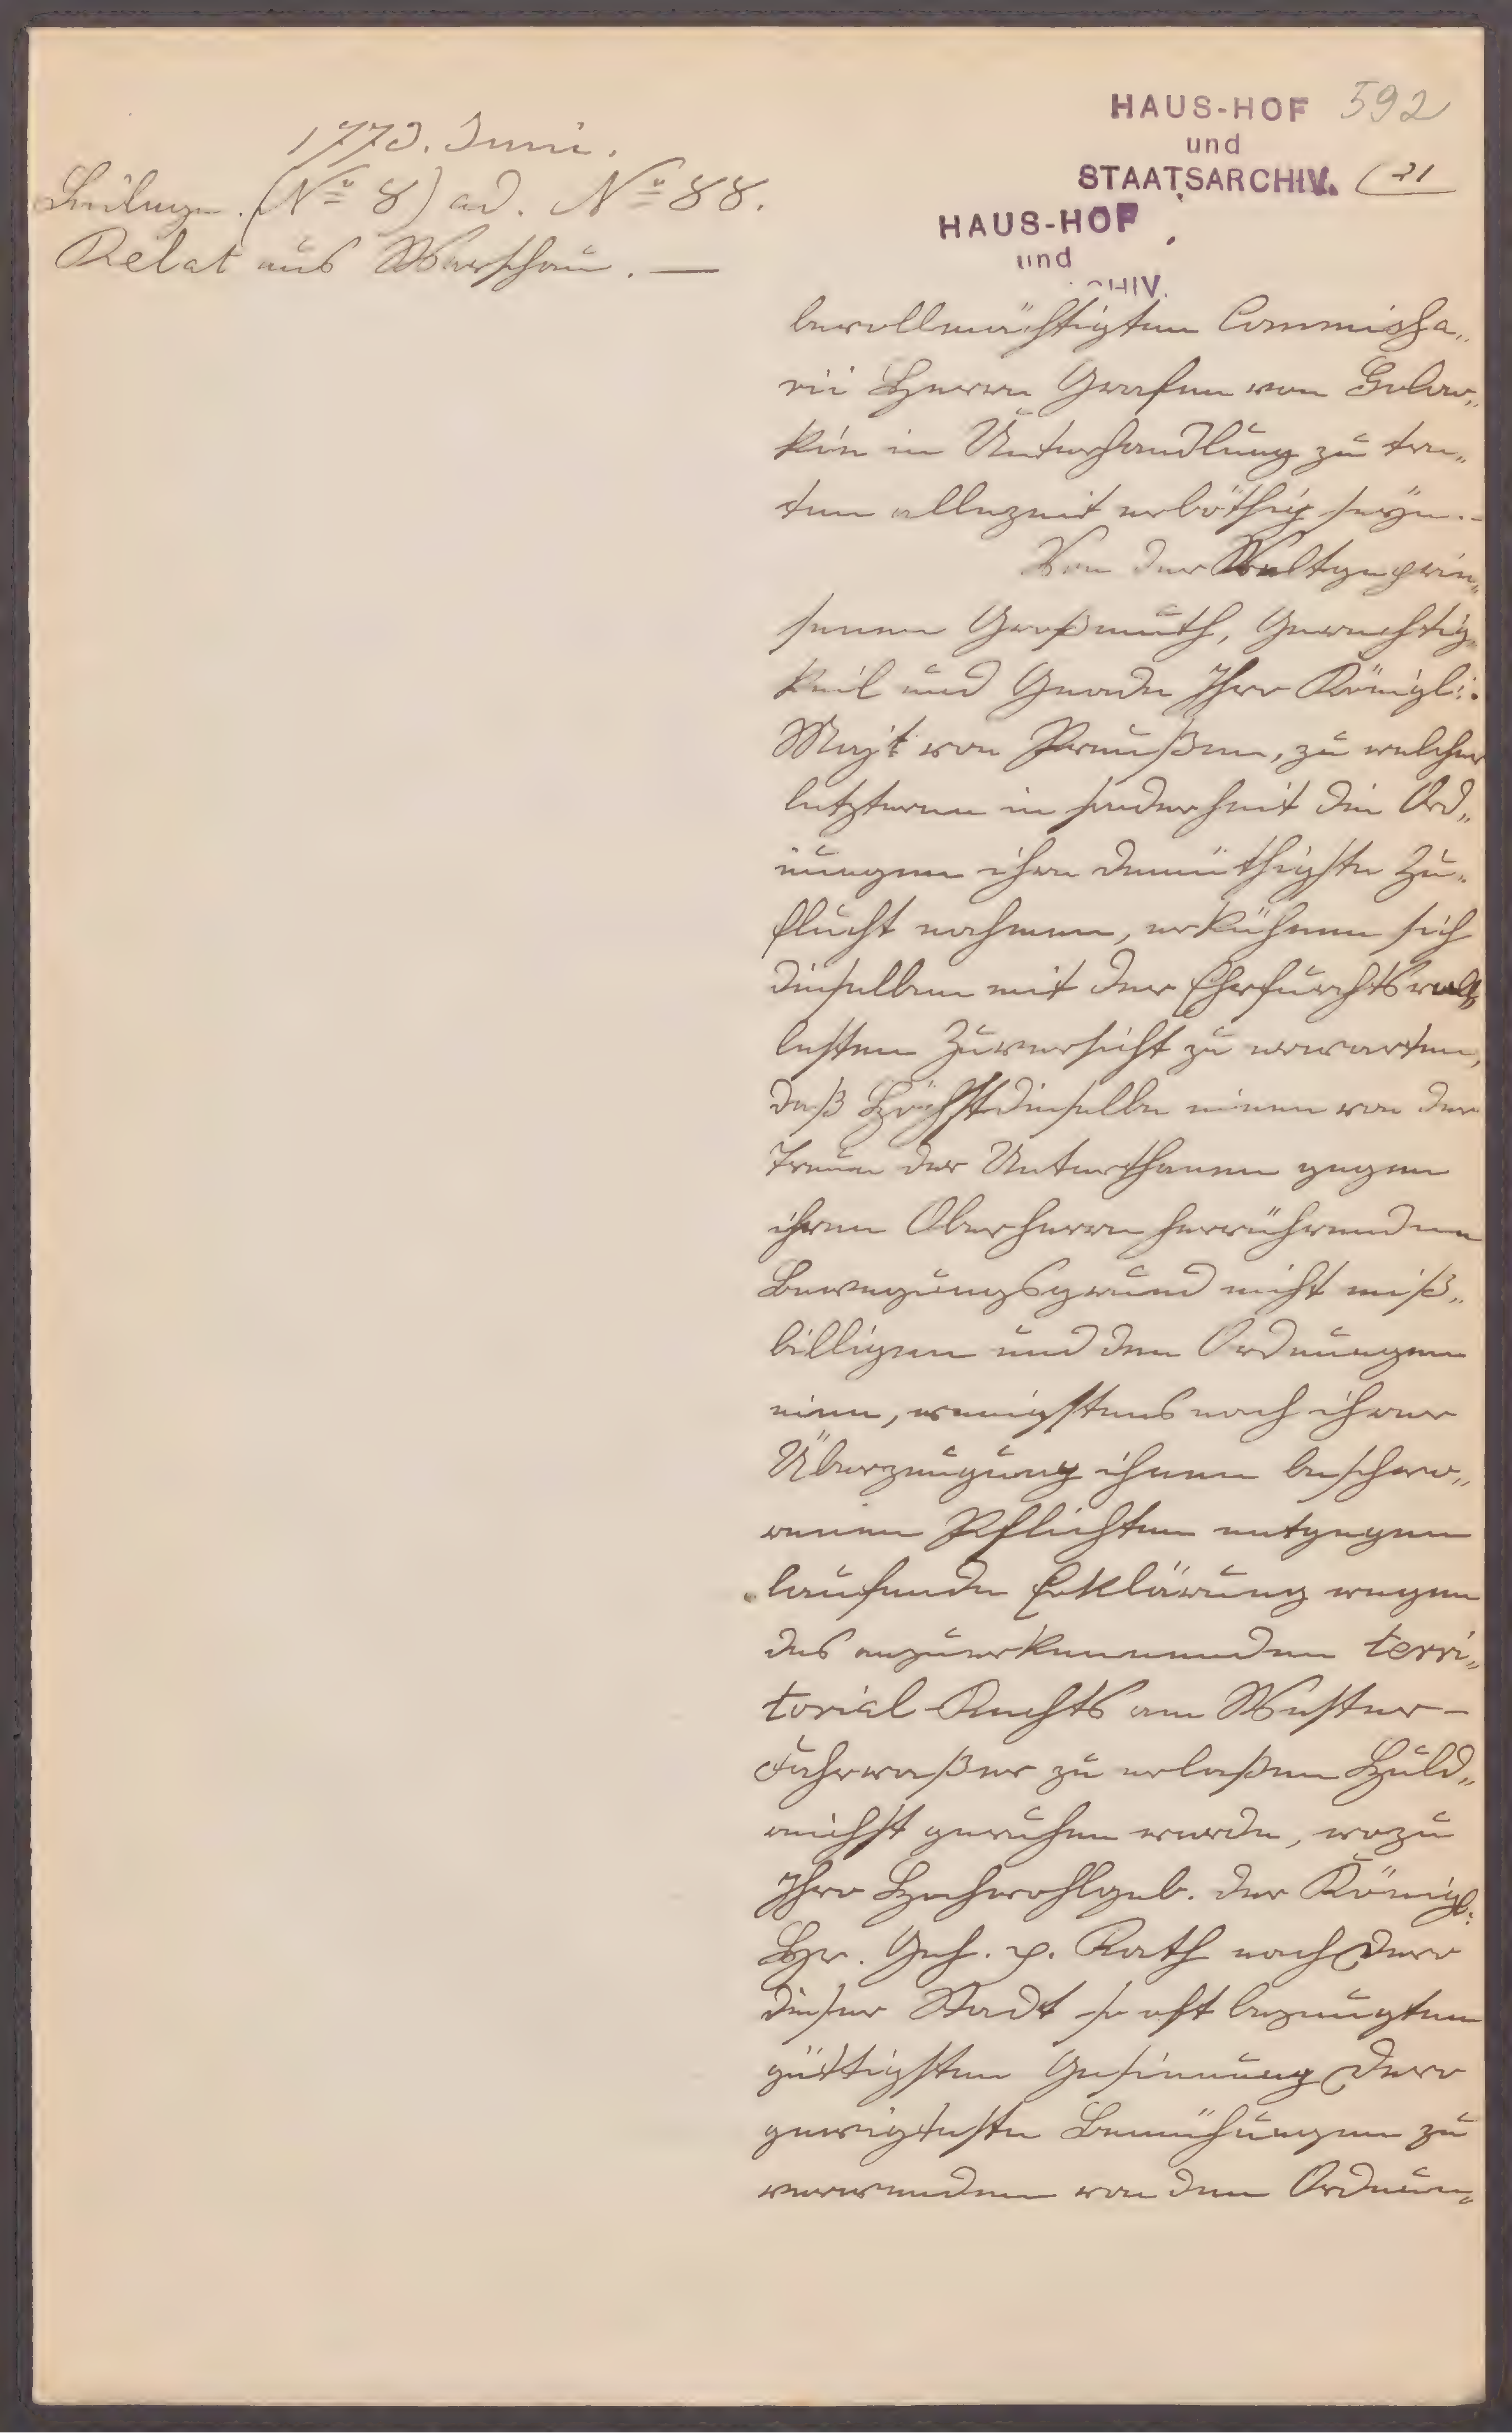 HAUS-HOF 592
und
STAATSARCHIV. (21
HAUS-HOF
und
CHIV.
1773. Juni.
Beilage. (No 8) ad. No 88.
Relat aus Warschau. —
bevollmächtigten Commissa„
rii Herrn Grafen von Golow„
kin in Unterhandlung zu tre„
ten allezeit erböthig seyn.-
Von der Weltgeprie„
senen Großmuth, Gerechtig„
keit und Gnade Ihro Königl:.
Maj't von Preußen, zu welcher
letzteren in sonderheit die Ord„
nungen ihre demüthigste Zu„
flucht nehmen, erkühnen sich
dieselben mit der Ehrfurchtsvol„
lesten Zuversicht zu erwarten,
daß Höchstdieselbe einen von der
Treue der Unterthanen gegen
ihren Oberherrn herrührenden
Bewegungsgrund nicht miß„
billigen und den Ordnungen
eine, wenigstens nach ihrer
Überzeugung ihnen beschwo„
renen Pflichten entgegen
laufende Erklärung wegen
des anzuerkennenden terri„
torial-Rechts am Wester-
Fahrwaßer zu erlaßen Huld„
reichst geruhen werde, wozu
Ihro Hochwohlgeb. der Königl:
Hr. Geh. p. Rath nach Dero
dieser Stadt so oft bezeugten
güttigsten Gesinnung Dero
geneigteste Bemühungen zu
verwenden von den Ordnun„